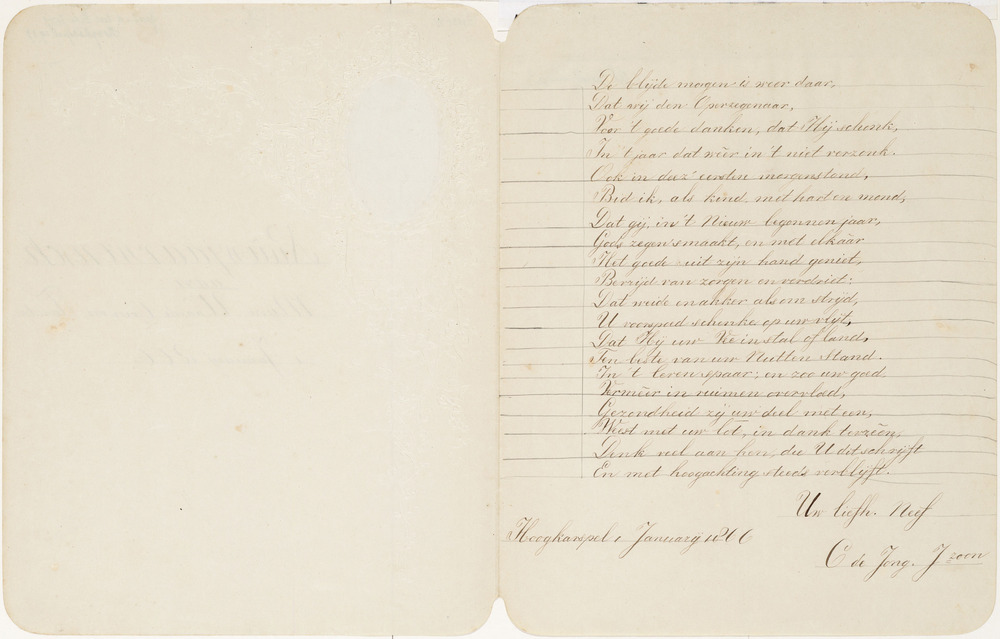 De blijde morgen is weer daar,
Dat wij den Operzegenaar,
Voor 't goede danken, dat Hij schonk,
In 't jaar dat wéér in 't niet verzonk.
Ook in deez' eersten morgenstond,
Bid ik, als kind met hart en mond,
Dat gij, in 't Nieuw begonnen jaar,
Gods zegen smaakt, en met elkâar
Het goede uit zijn hand geniet,
Bevrijd van zorgen en verdriet;
Dat weide en akker als om strijd,
U voorspoed schenke op uw vlijt,
Dat Hij uw Vee in stal of land,
Ten beste van uw Nutten Stand.
In 't leven spaar; en zoo uw goed
Vermeêr in ruimen overvloed,
Gezondheid zij uw deel met een,
Weest met uw lot, in dank
Denk veel aan hen, die U dit schrijft
En met hoogachting steeds verblijft.
Uw liefh. Neef
Hoogkarspel 1 Januarij
C de Jong. Jzoon